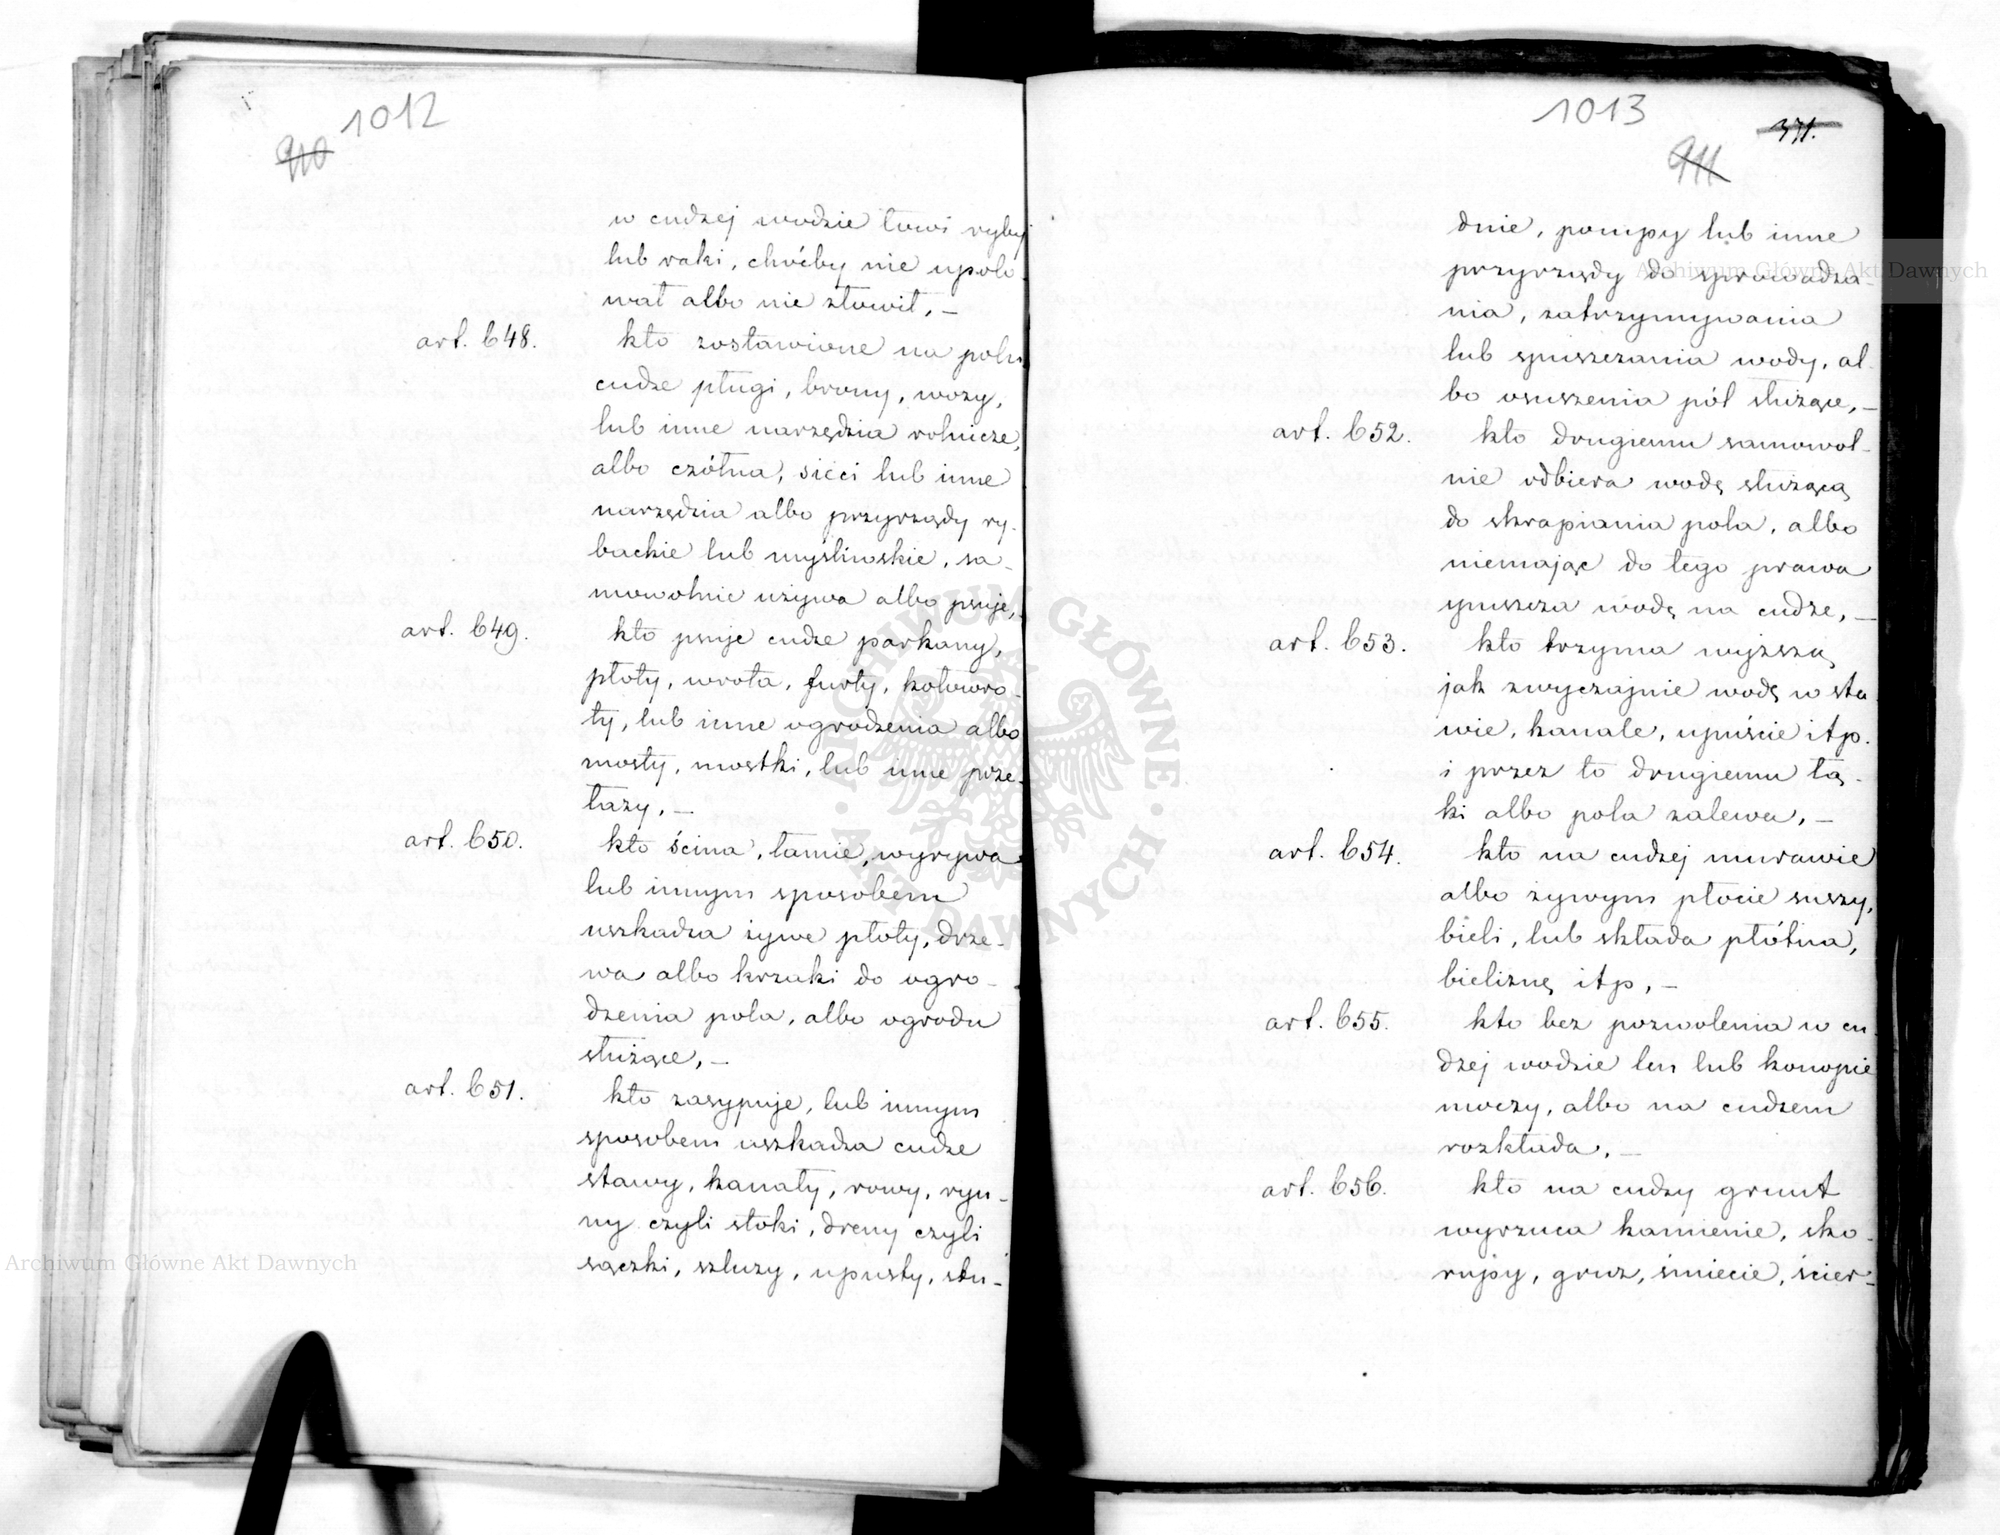 1012
910
w cudzej wodzie łowi ryby
lub raki, choćby nie upolo-
wał albo nie złowił, —
art. 648. kto zostawione na polu
cudze pługi, brony, wozy,
lub inne narzędzia rolnicze,
albo czółna, sieci lub inne
narzędzia albo przyrządy ry-
backie lub myśliwskie, sa-
mowolnie używa albo psuje, —
art. 649. kto psuje cudze parkany,
płoty, wrota, furty, kołowro-
ty, lub inne ogrodzenia albo
mosty, mostki, lub inne prze-
łazy, —
art. 650. kto ścina, łamie, wyrywa
lub innym sposobem
uszkadza żywe płoty, drze-
wa albo krzaki do ogro-
dzenia pola, albo ogrodu
służące, —
art. 651. kto zasypuje, lub innym
sposobem uszkadza cudze
stawy, kanały, rowy, ryn-
ny czyli stoki, dreny czyli
sączki, szluzy, upusty, stu-
1013
371.
911
dnie, pompy lub inne
przyrządy do sprowadza-
nia, zatrzymywania
lub spuszczania wody, al-
bo osuszenia pól służące, —
art. 652. kto drugiemu samowol-
nie odbiera wodę służącą
do skrapiania pola, albo
niemając do tego prawa
spuszcza wodę na cudze, —
art. 653. kto trzyma wyższą
jak zwyczajnie wodę w sta-
wie, kanale, upuście itp.
i przez to drugiemu łą-
ki albo pola zalewa, —
art. 654. kto na cudzej murawie
albo żywym płocie suszy,
bieli, lub składa płótna,
bieliznę itp, —
art. 655. kto bez pozwolenia w cu-
dzej wodzie len lub konopie
moczy, albo na cudzem
rozkłada, —
art. 656. kto na cudzy grunt
wyrzuca kamienie, sko-
rupy, gruz, śmiecie, ścier-
Archiwum Główne Akt Dawnych
Archiwum Główne Akt Dawnych
ARCHIWUM GŁÓWNE · AKT DAWNYCH ·